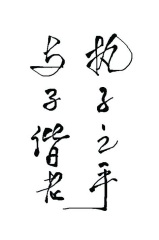 执子之手
与子偕老